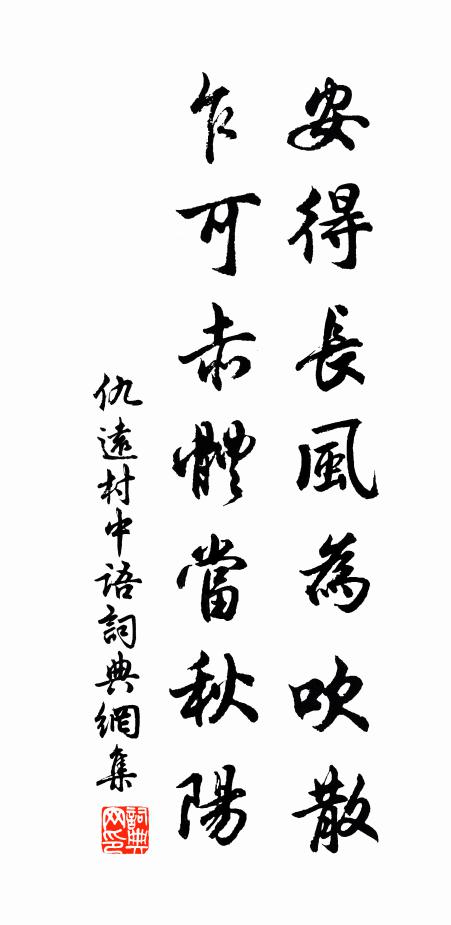 安得長風為吹散
乍可赤體當秋陽
仇遠村中語詞典網集
詞典网印